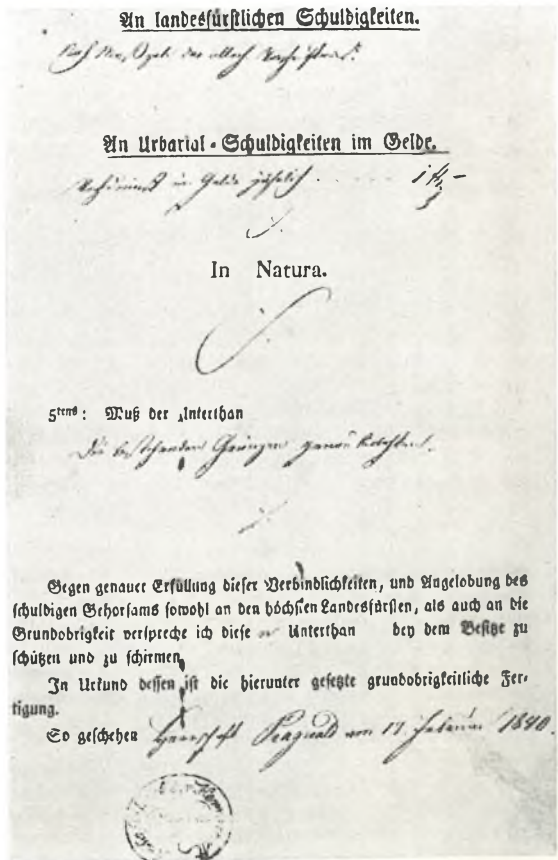 An landesfürstlichen Schuldigkeiten.
An Urbarial-Schuldigkeiten im Gelde.
in Gelde jährlich . . . . . 1
In Natura.
5tens: Muß der Unterthan
Die bestehenden Gränzen genau beobachten.
Gegen genauer Erfüllung dieser Verbindlichkeiten, und Angelobung des
schuldigen Gehorsams sowohl an den höchsten Landesfürsten, als auch an die
Grundobrigkeit verspreche ich diese Unterthan bey dem Besitze zu
schützen und zu schirmen
In Urkund dessen ist die hierunter gesetzte grundobrigkeitliche Fer-
tigung.
So geschehen Herrschaft am 17. Februar 1840.